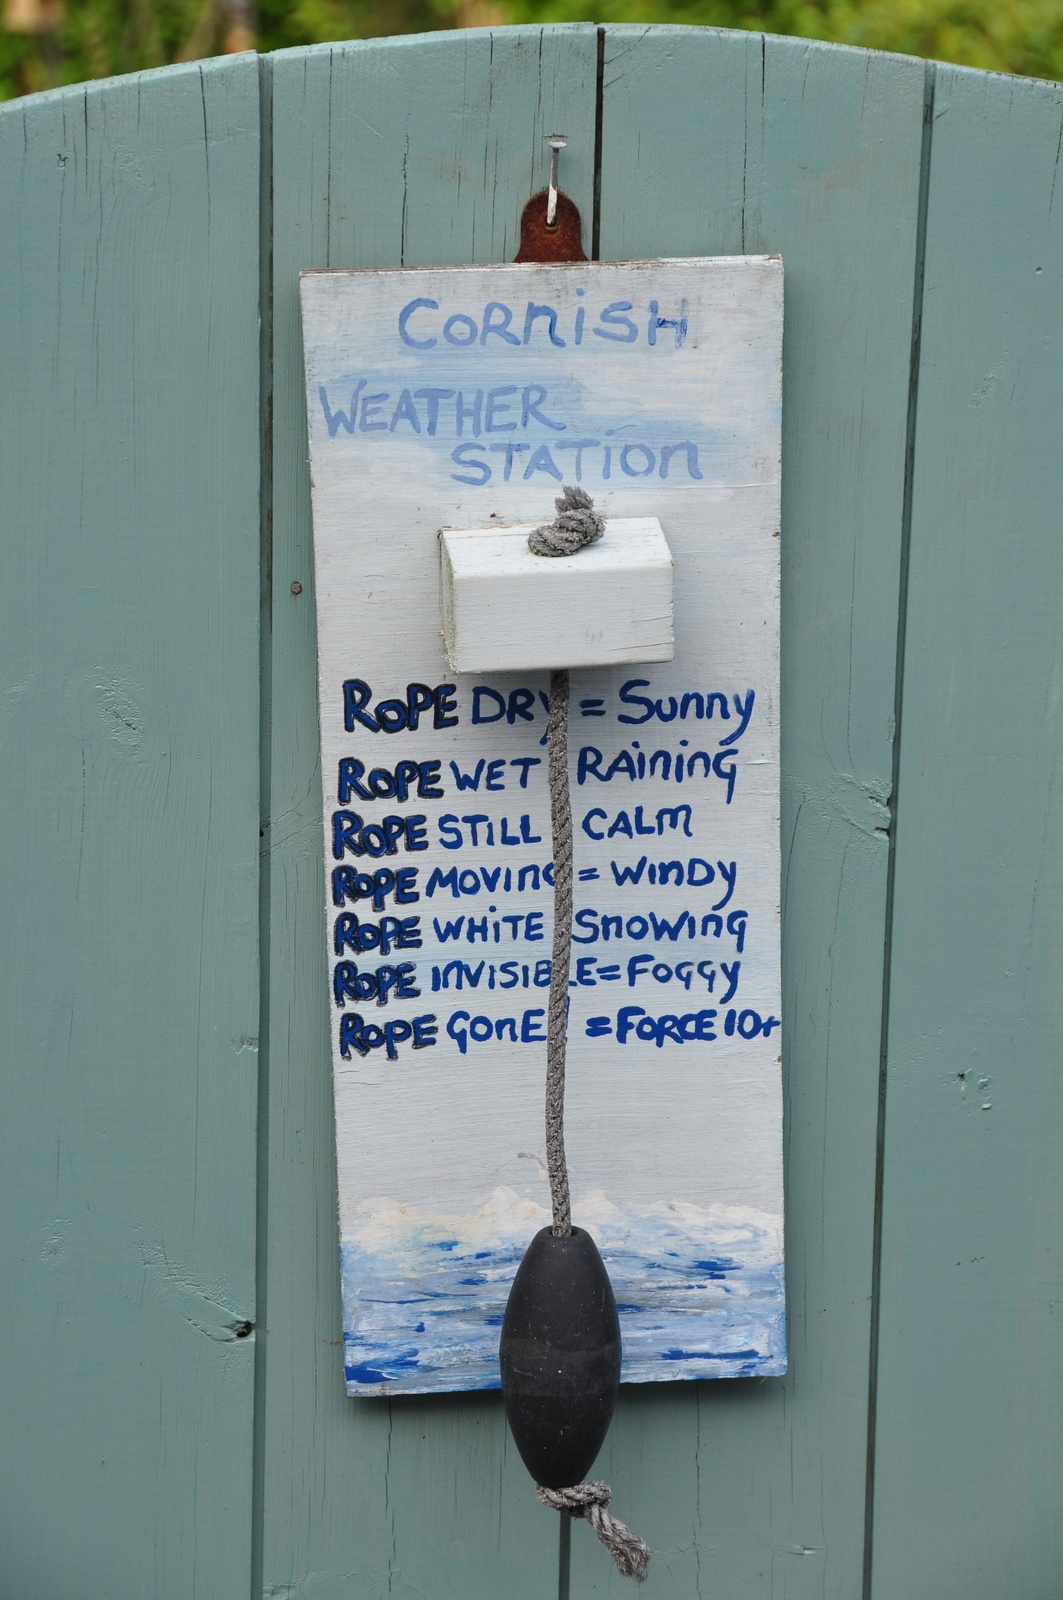 CORNISH
WEATHER
STATION
ROPE DRY = Sunny
ROPE WET RAINING
ROPE STILL CALM
ROPE MOVING = WINDY
ROPE WHITE SNOWING
ROPE INVISIBLE = FOGGY
ROPE GONE! = FORCE 10+